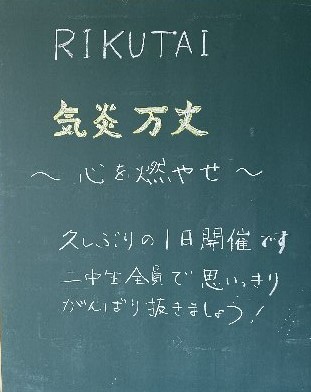 RIKUTAI
気炎万丈
～心を燃やせ～
久しぶりの1日開催です
二中生全員で思いっきり
がんばり抜きましょう!